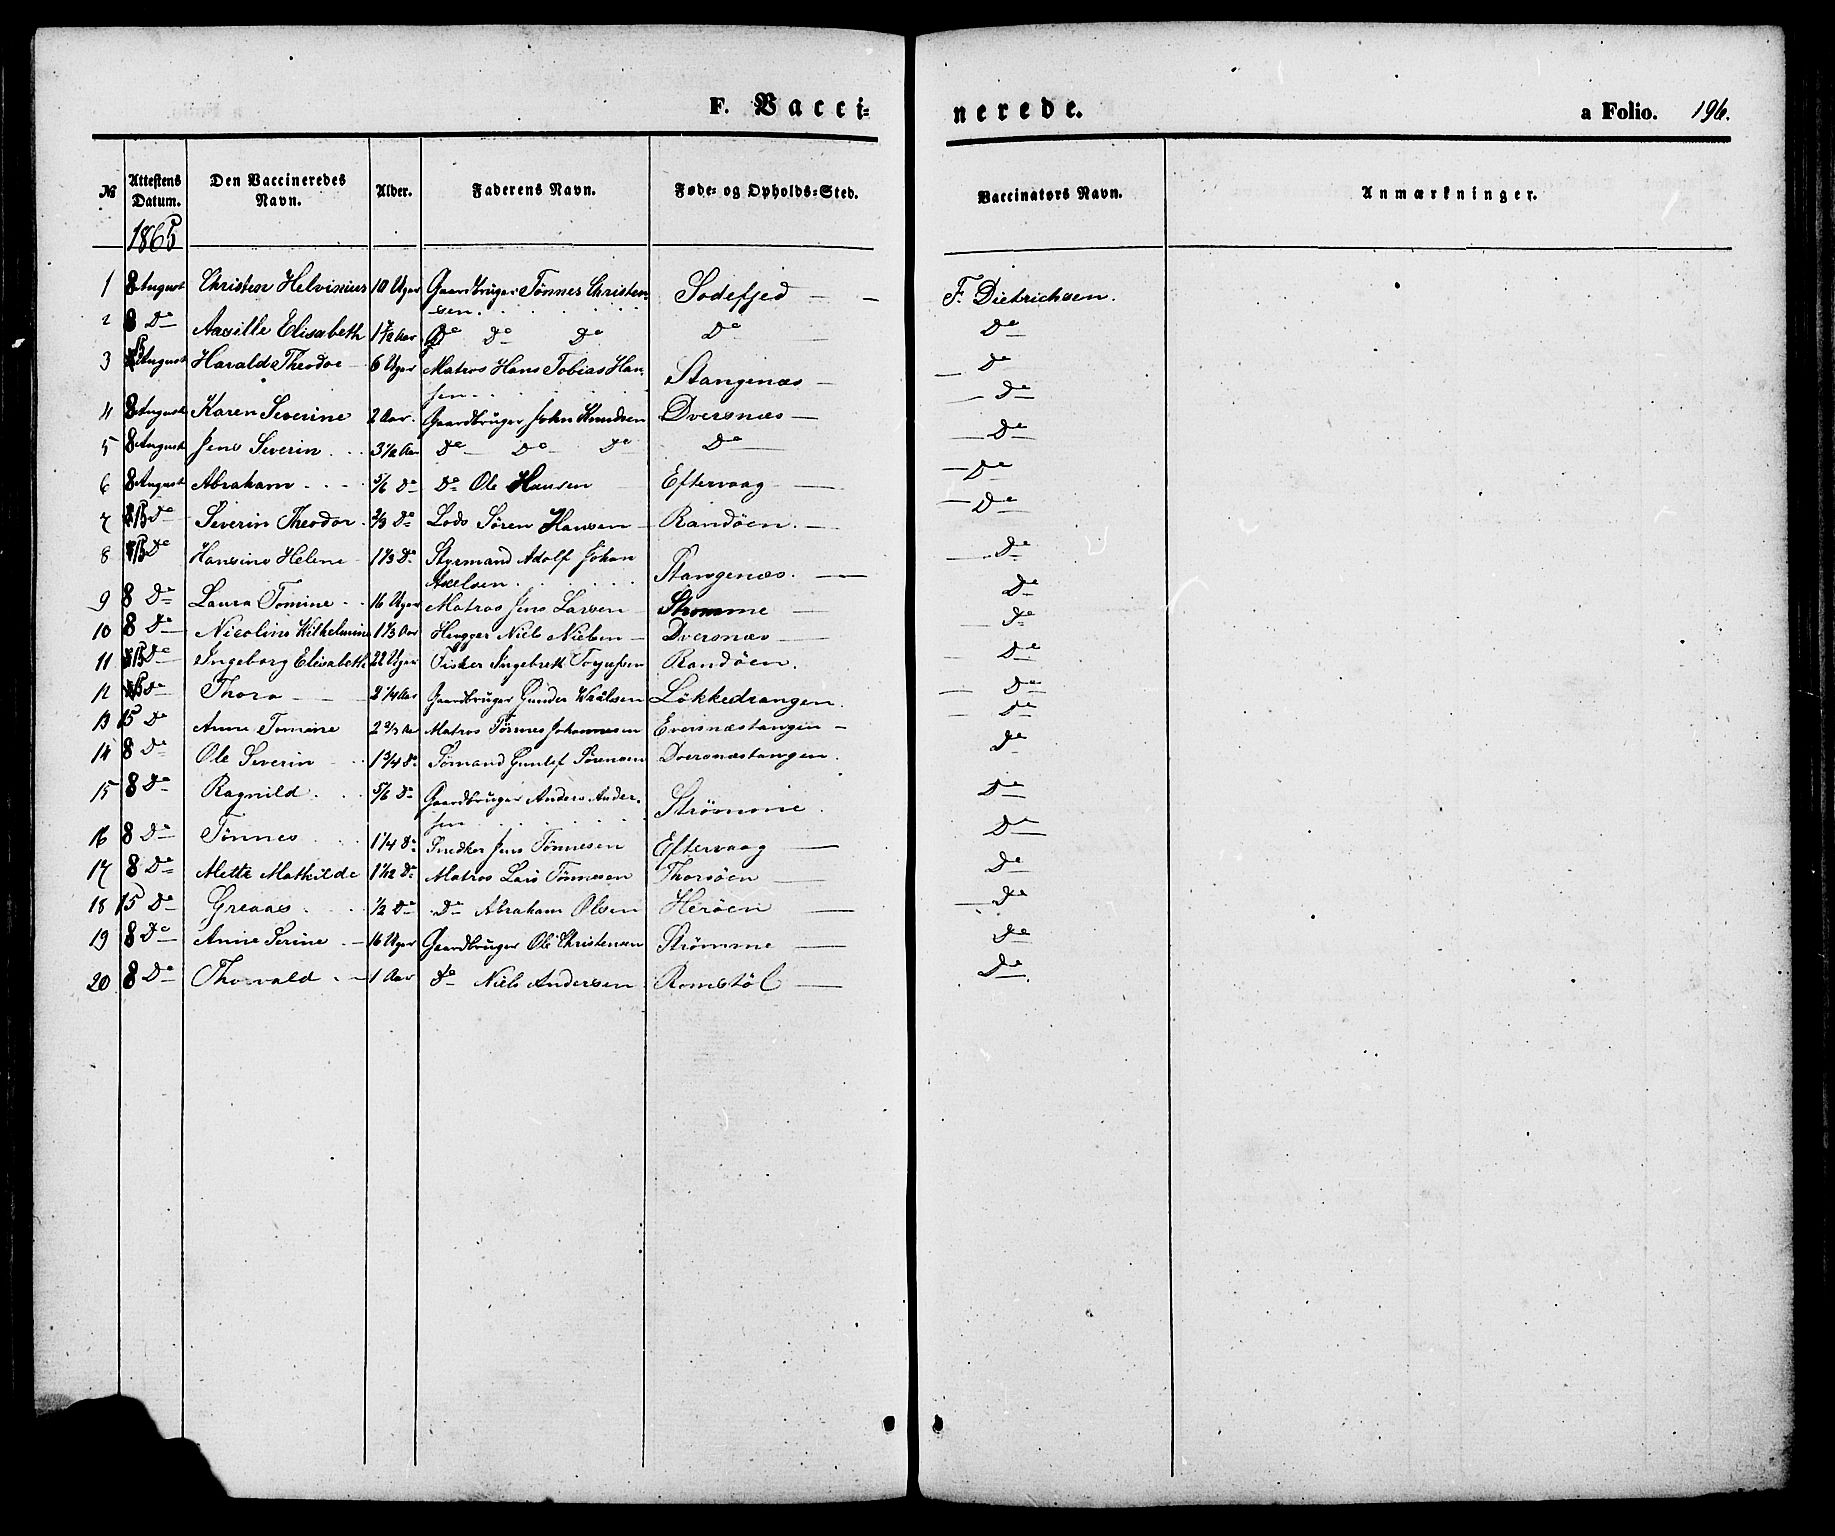 F. Vacci= nerede. a Folio. 196.
№ Attestens Datum. Den Vaccineredes Navn. Alder. Faderens Navn. Føde= og Opholds=Sted. Vaccinatørs Navn. Anmærkninger.
1865
1 8 August Christen Helvinius 10 Uger Gaardbruger Tönnes Christen- Sodefjed — — F. Dietrichsen.
sen.
2 8 Do Aasille Elisabeth 1½ Aar Do Do Do Do Do
3 August Harald Theodor 6 Uger Matros Hans Tobias Han- Stangenæs — Do
sen. Do
4 8 August Karen Severine 2 Aar. Gaardbruger John Knudsen Dversnæs —
5 8 August Jens Severin 3½ Aar Do Do Do Do Do
6 8 August Abraham 5/6 Do Do Ole Hansen Eftervaag — Do
7 Do Severin Theodor 2/3 Do Lods Sören Hansen Randöen. — Do
8 Do Hansine Helene 1⅓ Do Styrmand Adolf Johan Do
Axelsen Stangenæs. —
9 8 Do Laura Tomine 16 Uger Matros Jens Larsen Strømme — Do
10 8 Do Nicoline Wilhelmine 1⅓ Aar Hugger Niels Nielsen Dversnæs — Do
11 Do Ingeborg Elisabeth 22 Uger Fisker Ingebreth Torjussen Randöen. Do
12 Do Thora 2¼ Aar Gaardbruger Gunder Lökkedrangen. Do
13 15 Do Anne Tomine 2⅔ Aar Matros Tönnes Johannesen Do
14 8 Do Ole Severin 1¾ Do Sømand Sörensen Dversnæstangen. Do
15 8 Do Ragnild 5/6 Do Gaardbruger Anders Ander- Strømme. Do
sen
16 8 Do Tönnes 1¼ Do Snedker Jens Tönnesen Eftervaag — Do
17 8 Do Mette Mathilde 1 1/12 Do Matros Lars Tönnesen Thorsöen — Do
18 15 Do Greaas ½ Do Do Abraham Olsen Heröen — Do
19 8 Do Anne Serine 16 Uger Gaardbruger Ole Christensen Strømme — Do
20 8 Do Thorvald 1 Aar Do Niels Andersen Romstöl — Do